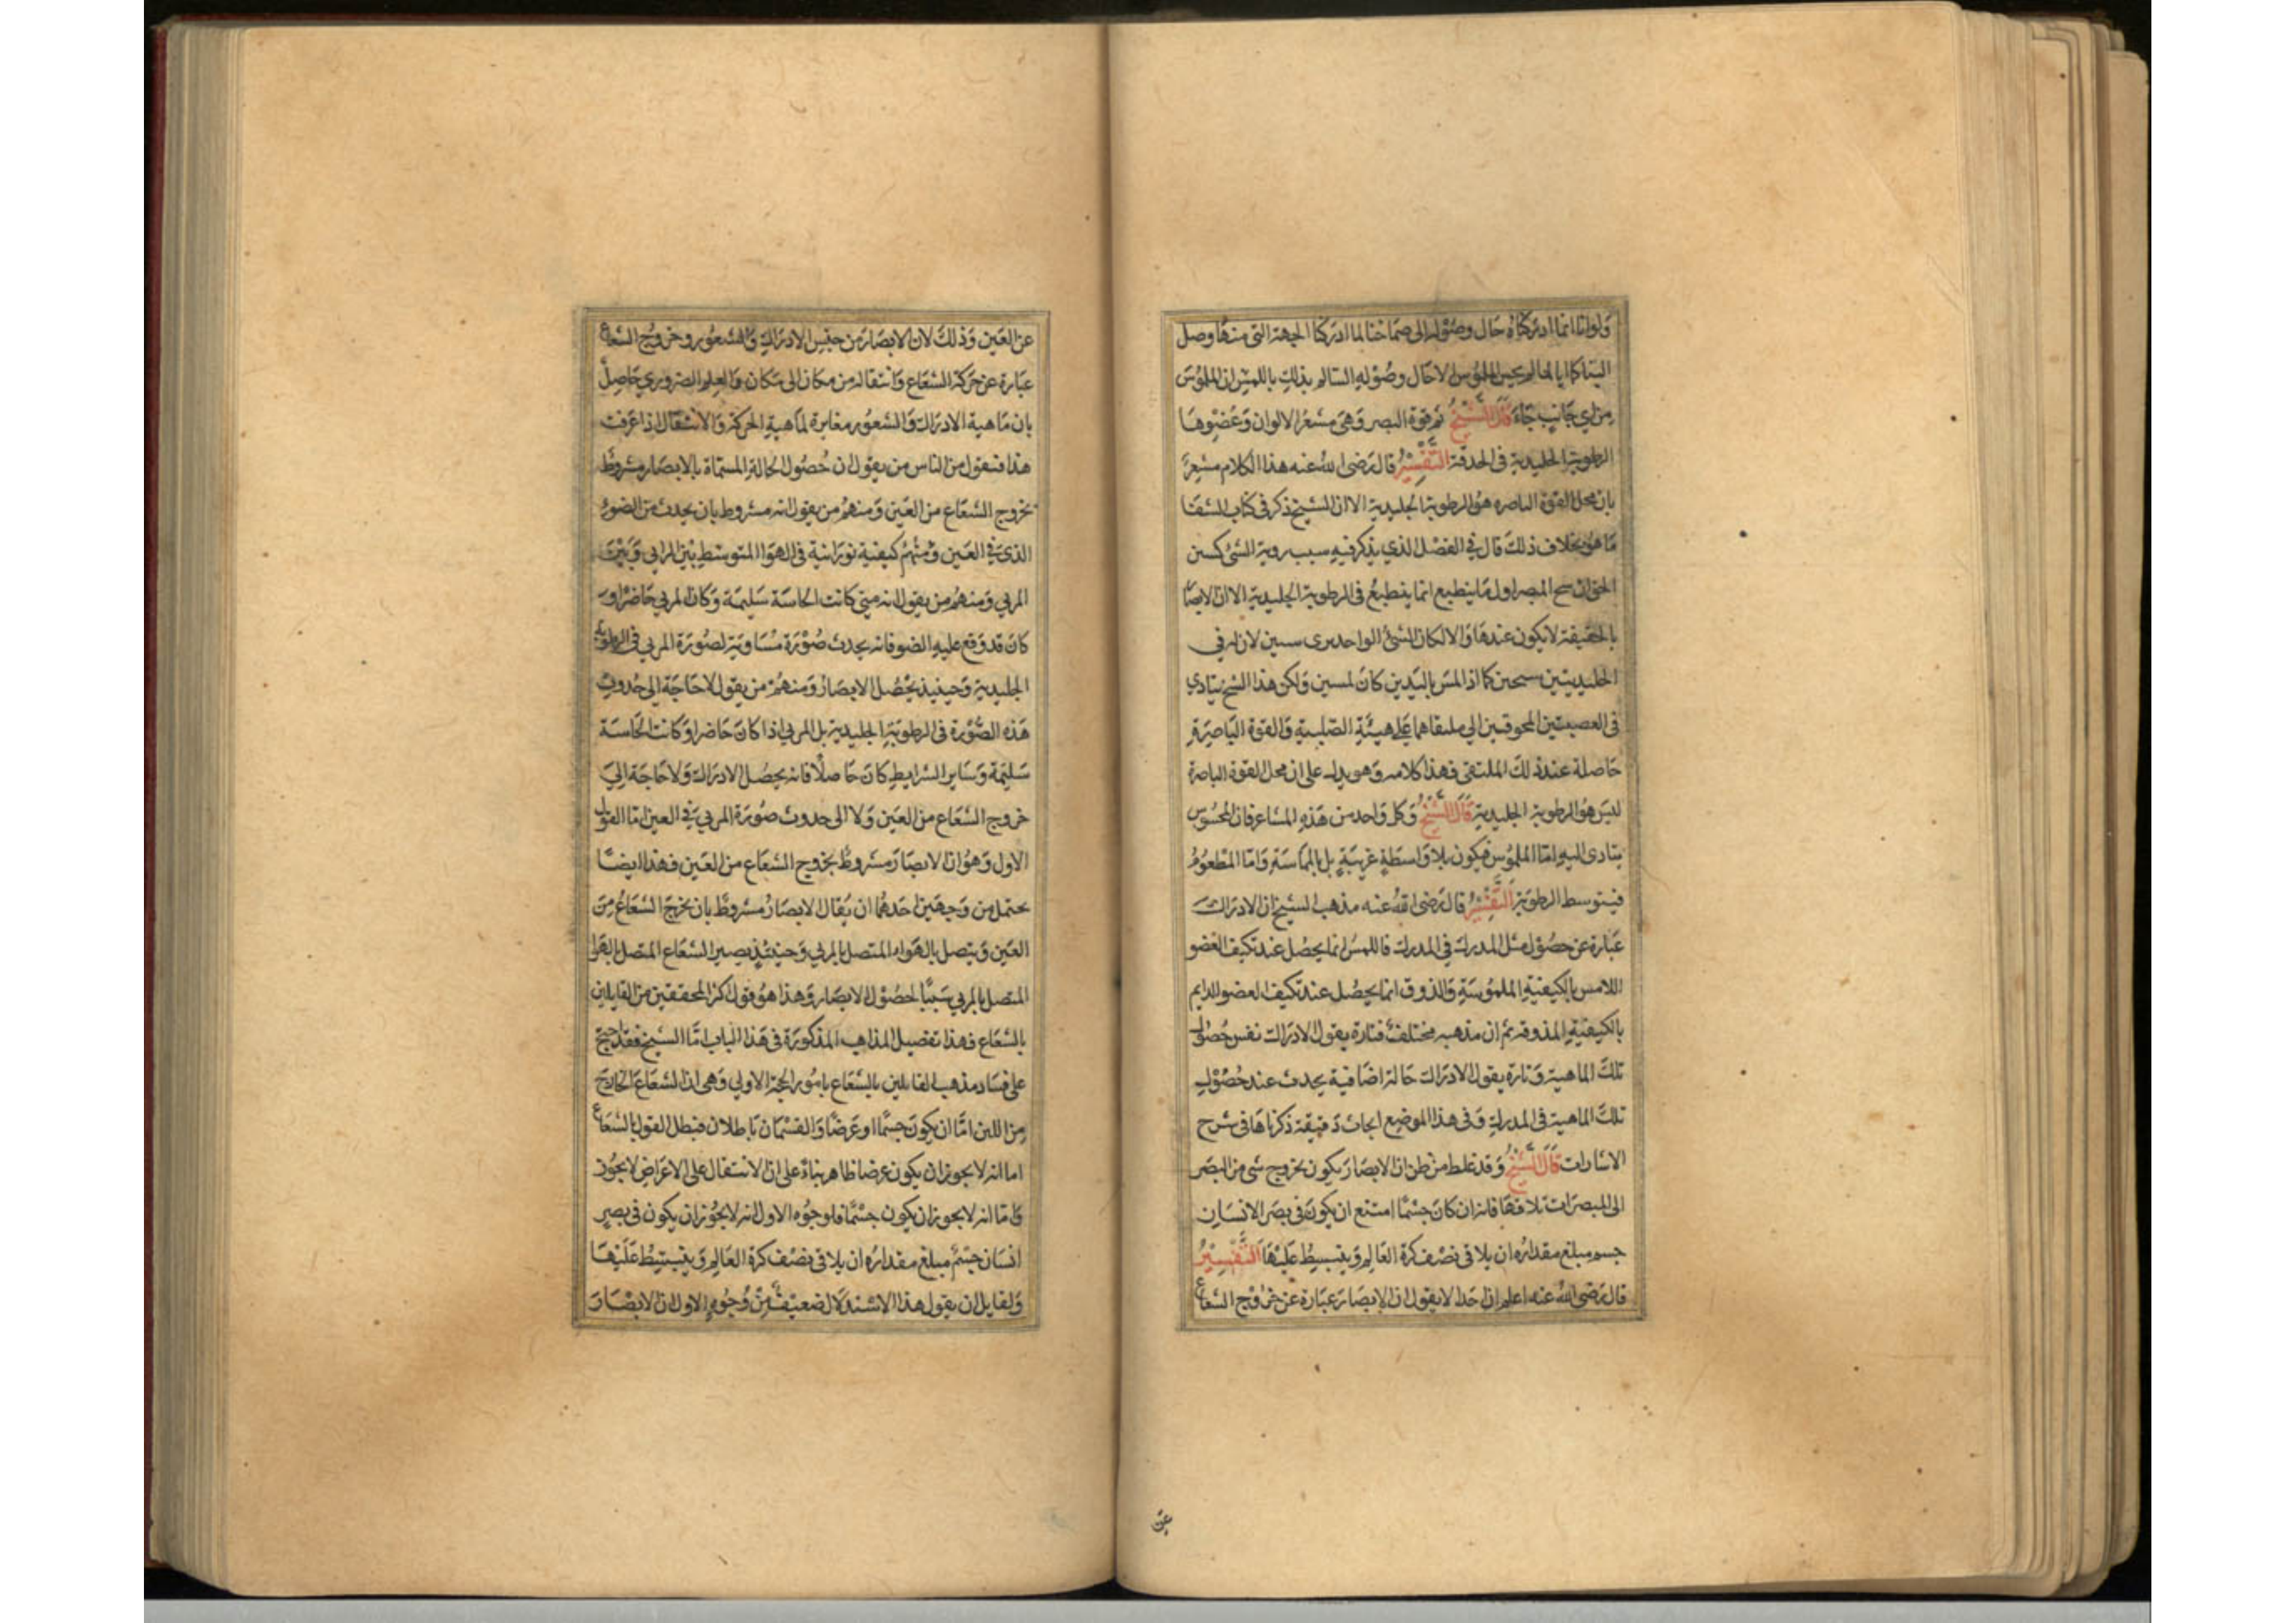 ولو انا انما ادركناه حال وصوله الى صماخنا لما ادركنا الجهة التي منها وصل
الينا كما انا لما لم نحس الملموس الا حال وصوله الينا لم يدرك باللمس ان الملموس
من اي جانب جاء قال الشيخ ثم قوة البصر وهي مشعر الالوان وعضوها
الرطوبة الجليدية في الحدقة التفسير قال رضي الله عنه هذا الكلام مشعر
بان محل القوة الباصره هو الرطوبة الجليدية الا ان الشيخ ذكر في كتاب الشفا
ما هو بخلاف ذلك قال في الفصل الذي يذكر فيه سبب روية الشئ كشيئين
الحق ان شبح المبصر اول ما ينطبع انما ينطبع في الرطوبة الجليدية الا ان الابصا
بالحقيقة لا يكون عندها والا لكان الشئ الواحد يرى شيئين لان له في
الجليديتين شبحين كما اذا لمس باليدين كان لمسين ولكن هذا الشبح يتادي
في العصبتين المجوفتين الى ملتقاهما على هيئة الصليب والقوة الباصرة
حاصلة عند ذلك الملتقى فهذا كلامه وهو يدل على ان محل القوة الباصرة
ليس هو الرطوبة الجليدية قال الشيخ وكل واحد من هذه المشاعر فان المحسوس
يتادى اليه اما الملموس فيكون بلا واسطة غريبة بل بالمماسة واما المطعوم
فيتوسط الرطوبة التفسير قال رضي الله عنه مذهب الشيخ ان الادراك
عبارة عن حصول مثل المدرك في المدرك فاللمس انما يحصل عند تكيف العضو
اللامس بالكيفية الملموسة والذوق انما يحصل عند تكيف العضو الدايم
بالكيفية المذوقة ثم ان مذهبه مختلف فتارة يقول الادراك نفس حصول
تلك الماهية وتارة يقول الادراك حالة اضافية يحدث عند حصول
تلك الماهية في المدرك وفي هذا الموضع ابحاث دقيقة ذكرناها في شرح
الاشارات قال الشيخ وقد غلط من ظن ان الابصار يكون بخروج شى من البصر
الى المبصرات تلاقها فانه ان كان جسما امتنع ان يكون في بصر الانسان
جسم مبلغ مقداره ان يلاقي نصف كرة العالم وينبسط عليها التفسير
قال رضي الله عنه اعلم ان احدا لا يقول ان الابصار عبارة عن خروج الشعاع
عن
عن العين وذلك لان الابصار من جنس الادراك والشعور وخروج الشعاع
عبارة عن حركة الشعاع وانتقاله من مكان الى مكان والعلم الضروري حاصل
بان ماهية الادراك والشعور مغايرة لماهية الحركة والانتقال اذا عرفت
هذا فنقول من الناس من يقول ان حصول الحالة المسماة بالابصار مشروط
بخروج الشعاع من العين ومنهم من يقول انه مشروط بان يحدث من الضوء
الذي في العين كيفية نورانية في الهوا المتوسط بين الراي وبين
المربي ومنهم من يقول انه متى كانت الحاسة سليمة وكان المربي حاضرا و
كان قد وقع عليه الضو فانه يحدث صورة مساوية لصورة المربي في الرطوبة
الجليدية وحينيذ يحصل الابصار ومنهم من يقول لا حاجة الى حدوث
هذه الصورة في الرطوبة الجليدية بل المربي اذا كان حاضرا وكانت الحاسة
سليمة وساير الشرايط كان حاصلا فانه يحصل الادراك ولا حاجة الى
خروج الشعاع من العين ولا الى حدوث صورة المربي في العين اما القول
الاول وهو ان الابصار مشروط بخروج الشعاع من العين فهذا ايضا
يحتمل من وجهين احدهما ان يقال الابصار مشروط بان يخرج الشعاع من
العين ويتصل بالهواء المتصل بالمربي وحينئذ يصير الشعاع المتصل بالهوا
المتصل بالمربي سببا لحصول الابصار وهذا هو قول اكثر المحققين من القايلين
بالشعاع فهذا تفصيل المذاهب المذكورة في هذا الباب اما الشيخ فقد احتج
على فساد مذهب القايلين بالشعاع بامور الحجة الاولى وهي ان الشعاع الخارج
من العين اما ان يكون جسما او عرضا والقسمان باطلان فبطل القول بالشعاع
اما انه لا يجوز ان يكون عرضا فظاهر بناء على ان الانتقال على الاعراض لا يجوز
واما انه لا يجوز ان يكون جسما فلوجوه الاول انه لا يجوز ان يكون في بصر
انسان جسم مبلغ مقداره ان يلاقي نصف كرة العالم وينبسط عليها
ولقايل ان يقول هذا الاستدلال ضعيف من وجوه الاول ان الابصار